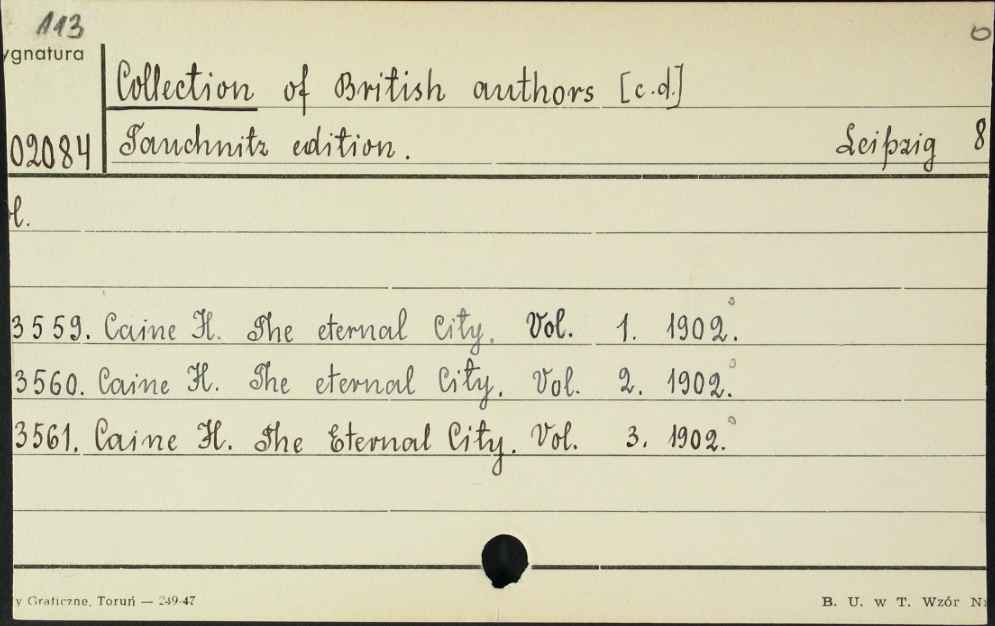 113
ygnatura
Collection of British authors [c.d.]
02084 Tauchnitz edition. Leipzig 8
l.
3559. Caine H. The eternal City. Vol. 1. 1902.
3560. Caine H. The eternal City. Vol. 2. 1902.
3561. Caine H. The Eternal City. Vol. 3. 1902.
y Graficzne, Toruń — 249-47
B. U. w T. Wzór N